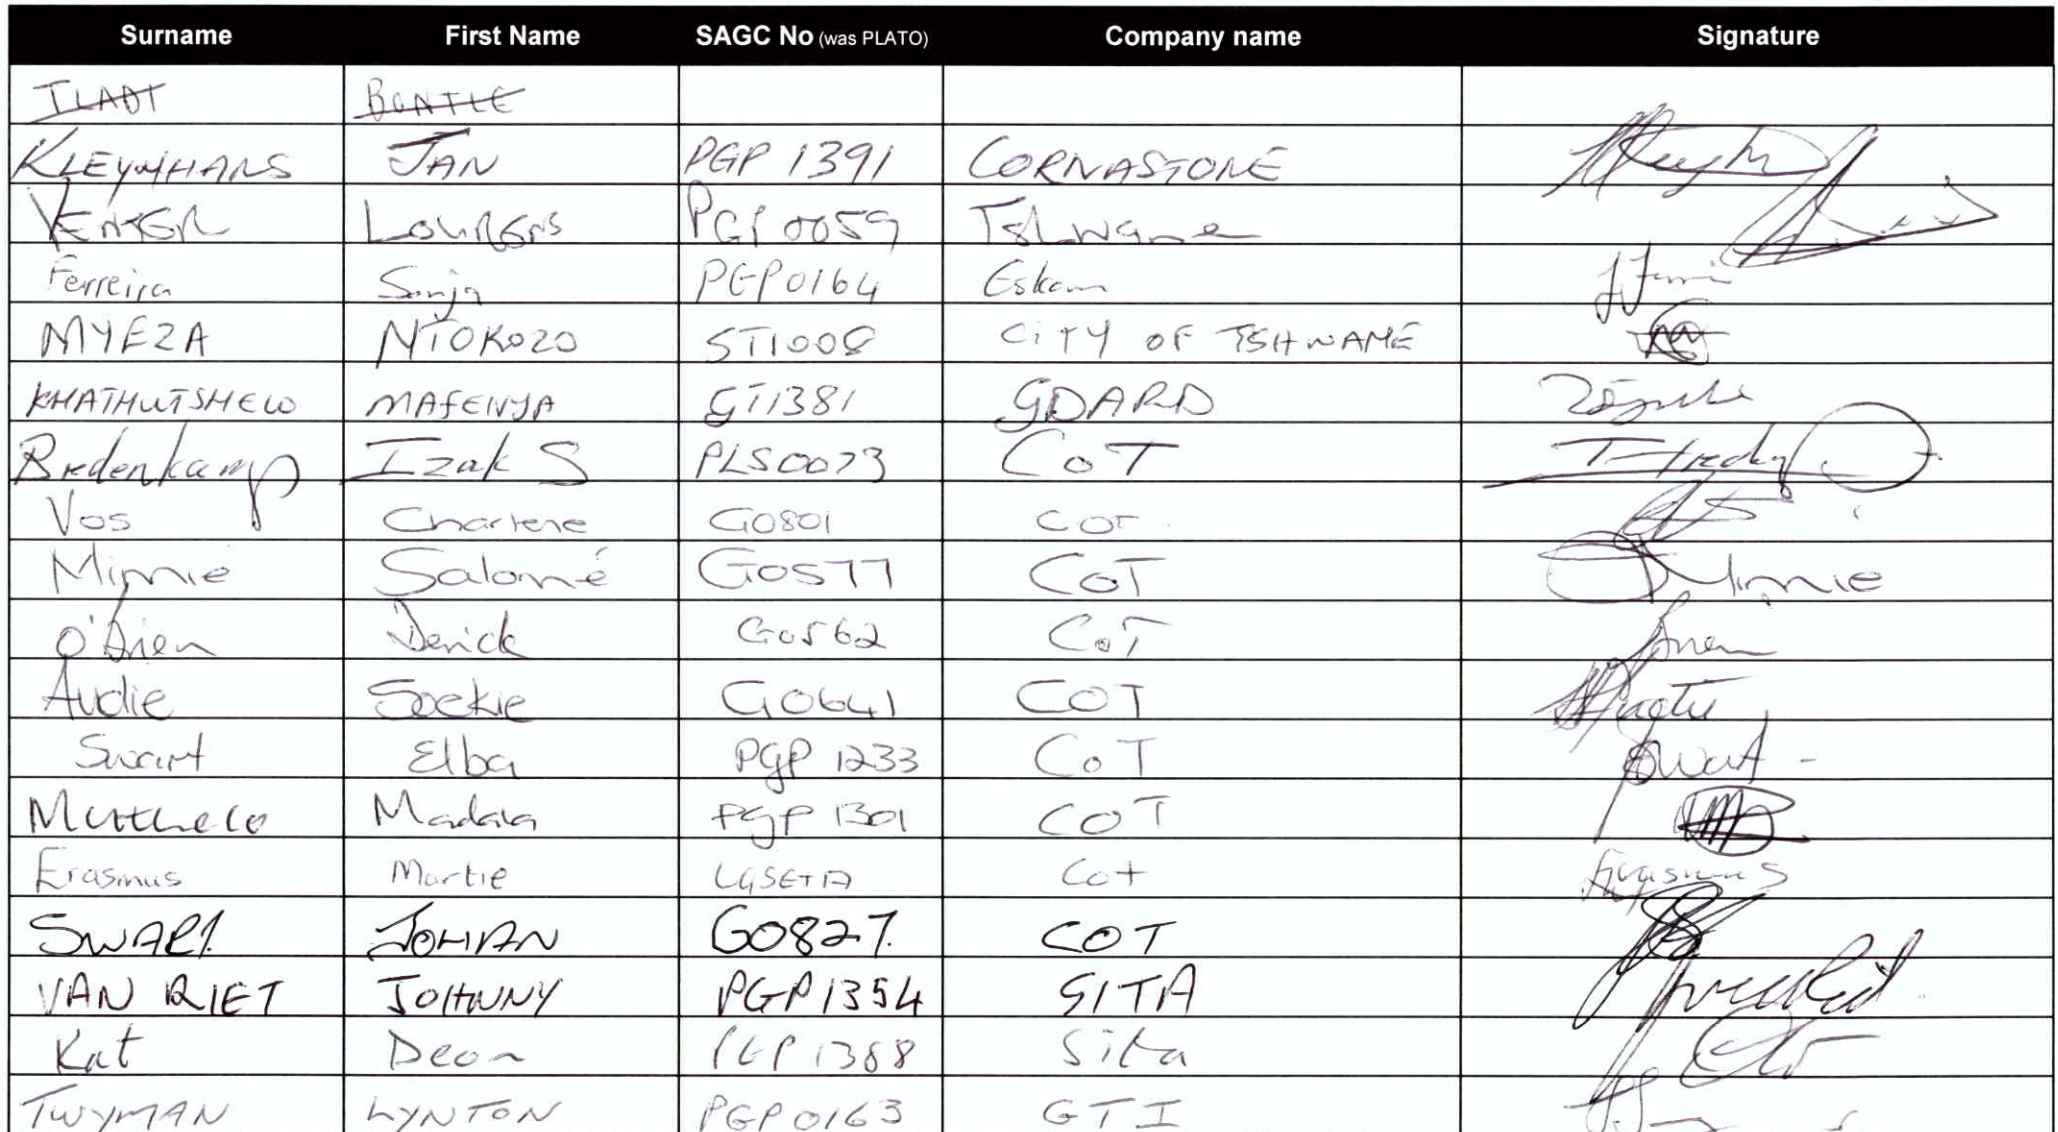 Surname First Name SAGC No (was PLATO) Company name Signature
KLEYNHANS JAN PGP 1391 CORNASTONE
VENTER LOURENS PGP 0059 Tshwane
Ferreira Sonja PGP0164 Eskom
MYEZA NTOKOZO ST1008 CITY OF TSHWANE
KHATHUTSHELO MAFENYA GT1381 GDARD
Bredenkamp Izak S PLS0073 CoT
Vos Charlene G0801 COT
Minnie Salomé G0577 CoT Minnie
O'Brien Derick G0562 CoT
Audie Soekie G0641 COT
Swart Elba PGP 1233 CoT Swart
Muthelo Madala PGP 1301 COT
Erasmus Martie LGSETA Cot Erasmus
SWART JOHAN G0827. COT
VAN RIET JOHNNY PGP1354 SITA
Kat Deon PGP 1388 Sita
TWYMAN LYNTON PGP0163 GTI